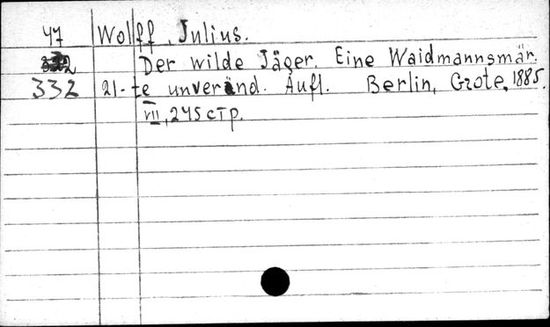 47 Wolff, Julius.
Der wilde Jäger. Eine Waidmannsmär.
332 21-te unveränd. Aufl. Berlin, Grote, 1885.
VII, 245 стр.